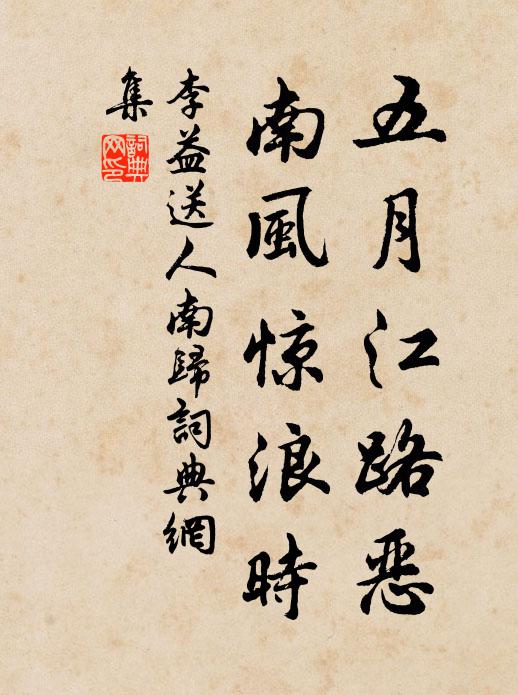 五月江路恶
南風惊浪時
李益送人南歸詞典網
集
詞典
网印